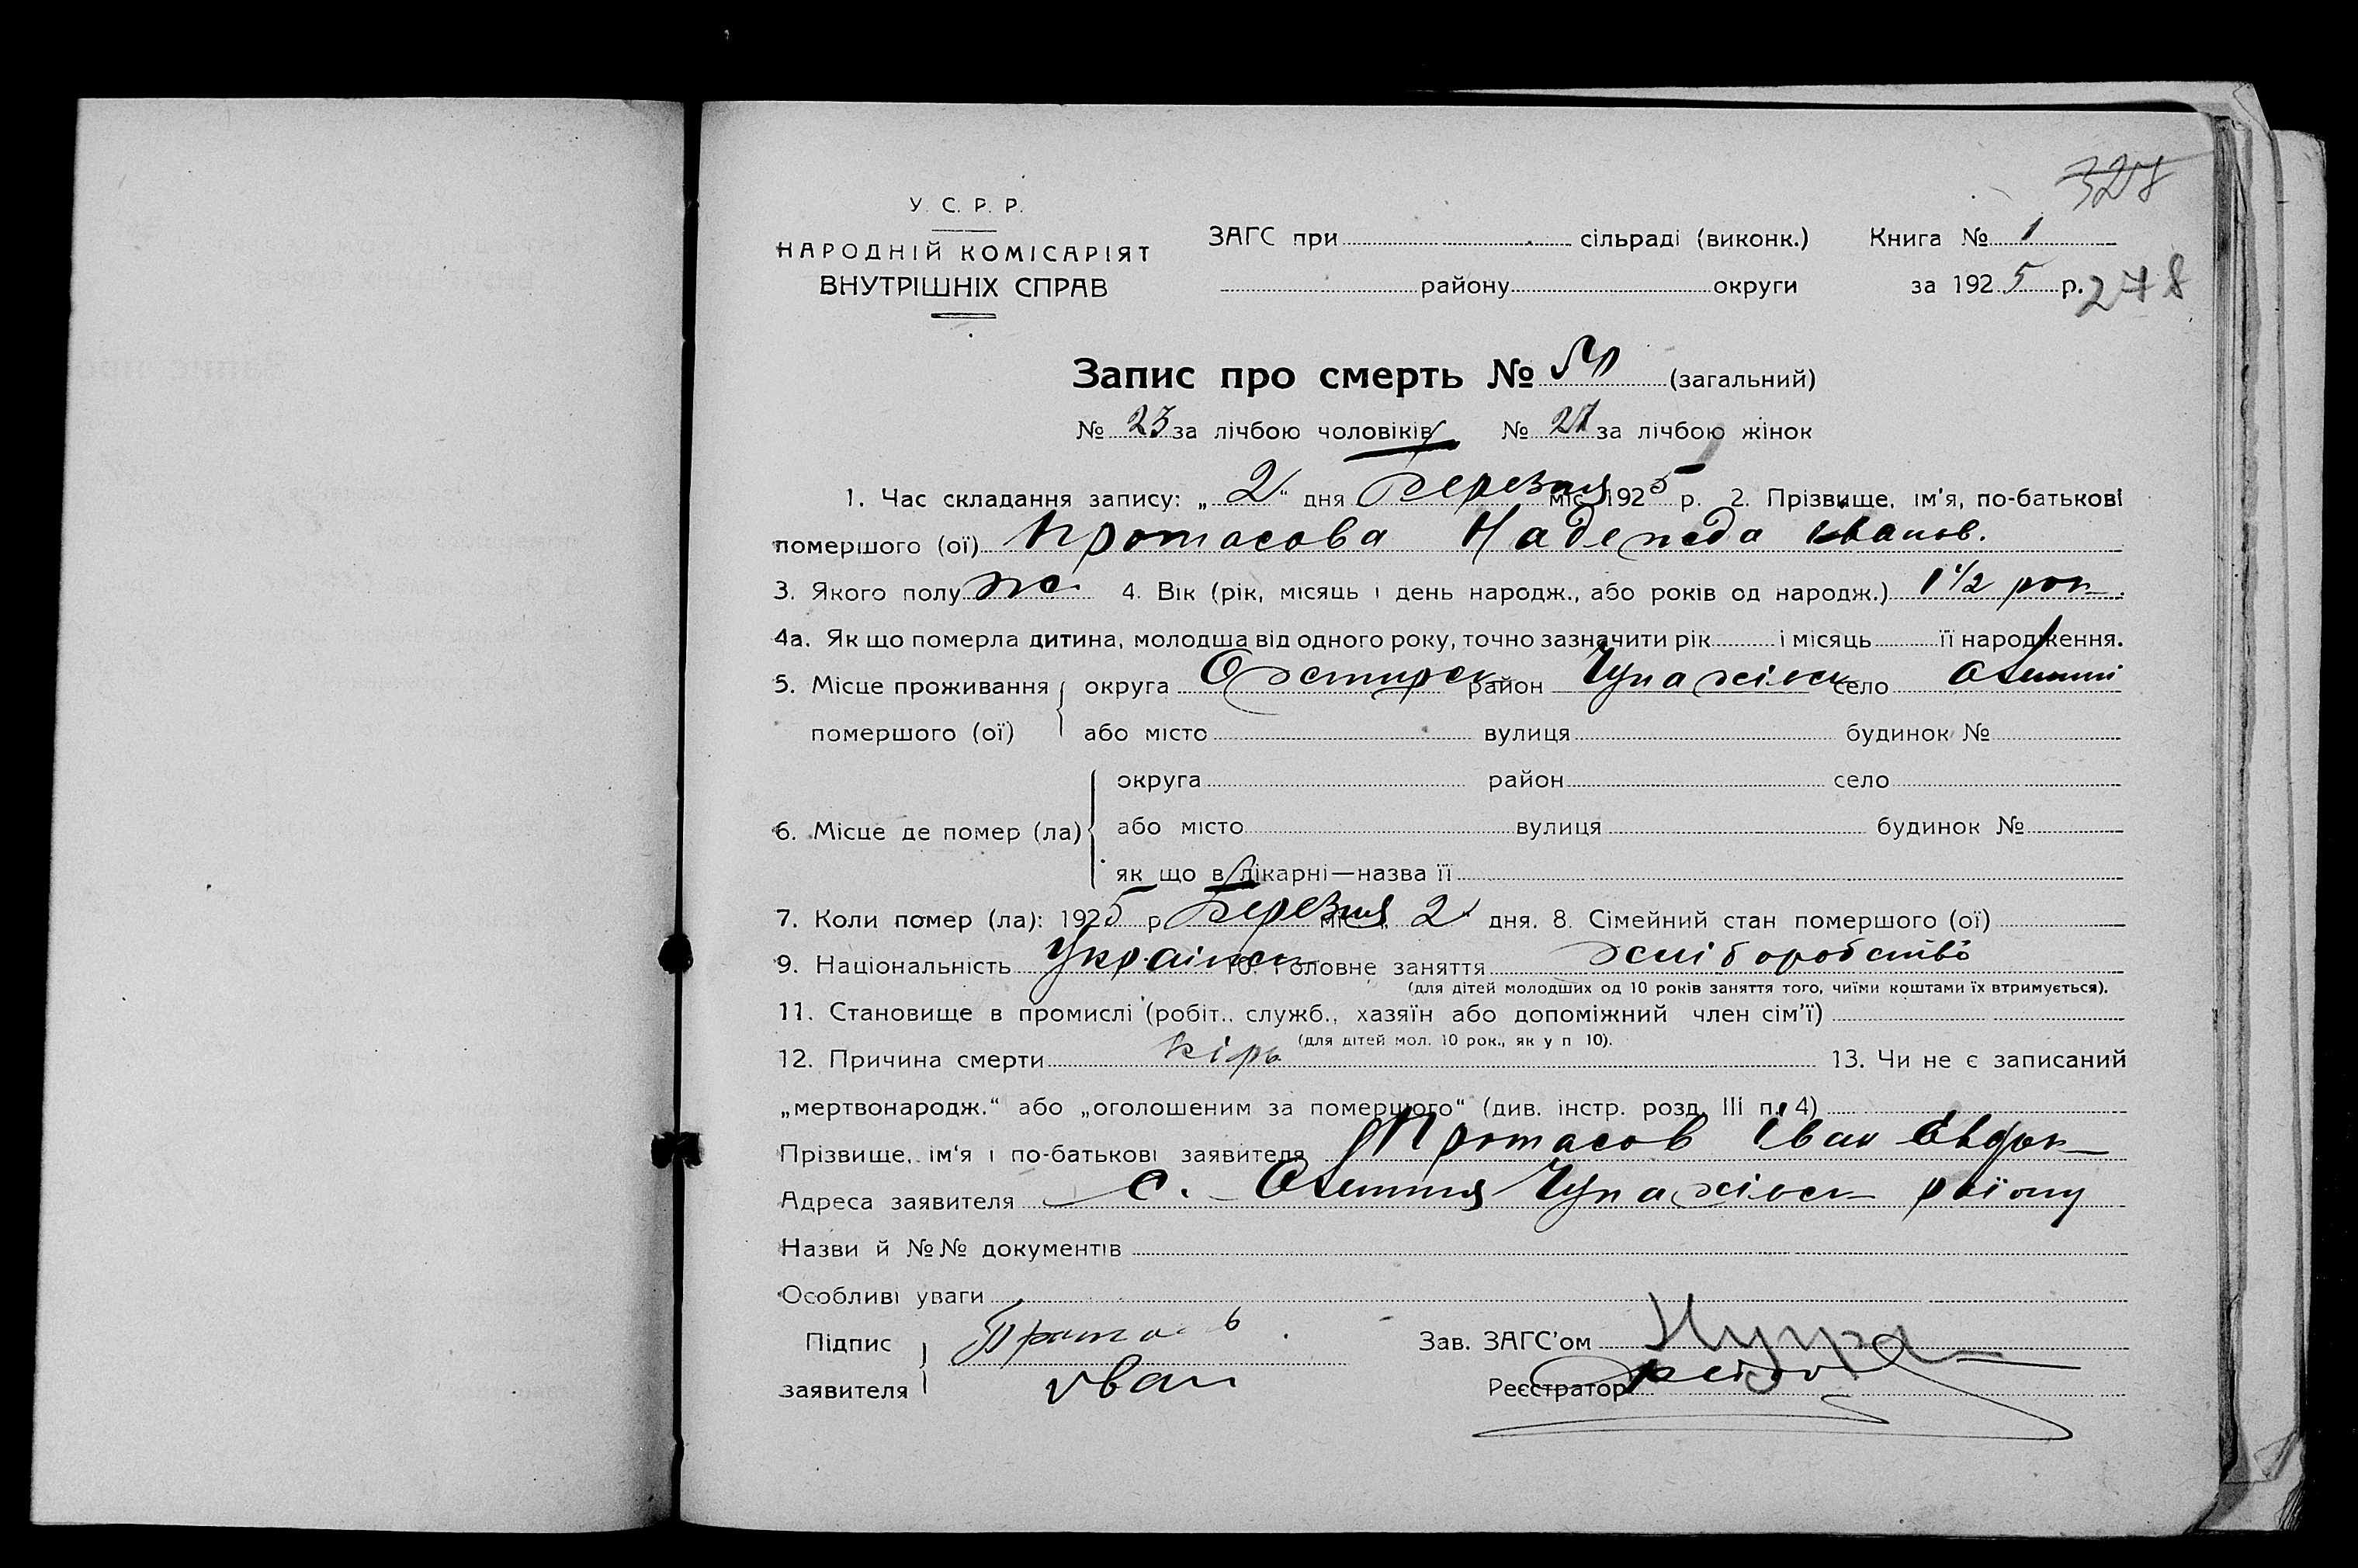 328
У. С. Р. Р.
НАРОДНІЙ КОМІСАРІЯТ
ВНУТРІШНІХ СПРАВ
ЗАГС при сільраді (виконк.) Книга № 1
району округи за 1925 р. 278
Запис про смерть № 50 (загальний)
№ 23 за лічбою чоловіків № 27 за лічбою жінок
1. Час складання запису: „2“ дня Березня міс. 1925 р. 2. Прізвище, ім'я, по-батькові
помершого (ої) Протасова Надежда Іванов.
3. Якого полу ж. 4. Вік (рік, місяць і день народж., або років од народж.) 1 1/2 рок.
4а. Як що померла дитина, молодша від одного року, точно зазначити рік і місяць її народження.
5. Місце проживання округа Охтирск район Чупахівск село Олешні
помершого (ої) або місто вулиця будинок №
округа район село
6. Місце де помер (ла) або місто вулиця будинок №
як що в лікарні—назва її
7. Коли помер (ла): 1925 р. Березня міс. „2“ дня. 8. Сімейний стан помершого (ої)
9. Національність Українск 10. Головне заняття хліборобство
(для дітей молодших од 10 років заняття того, чиїми коштами їх втримується).
11. Становище в промислі (робіт., служб., хазяїн або допоміжний член сім'ї)
(для дітей мол. 10 рок., як у п 10).
12. Причина смерти кірь 13. Чи не є записаний
„мертвонародж.“ або „оголошеним за помершого“ (див. інстр. розд. III п. 4)
Прізвище, ім'я і по-батькові заявителя Протасов Іван Євдок
Адреса заявителя с. Олешня Чупахівск району
Назви й №№ документів
Особливі уваги
Підпис Протасов Зав. ЗАГС'ом
заявителя Иван Реєстратор